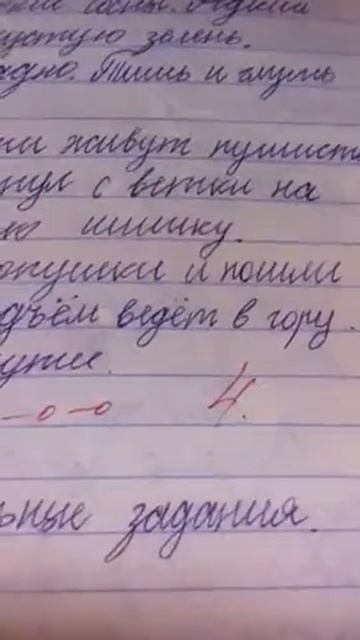 сосны.
густую зелень.
Тишь и глушь
живут пушист
нул с ветки на
шишку.
опушки и пошли
дъём ведёт в гору.
– о – о 4.
ьные задания.